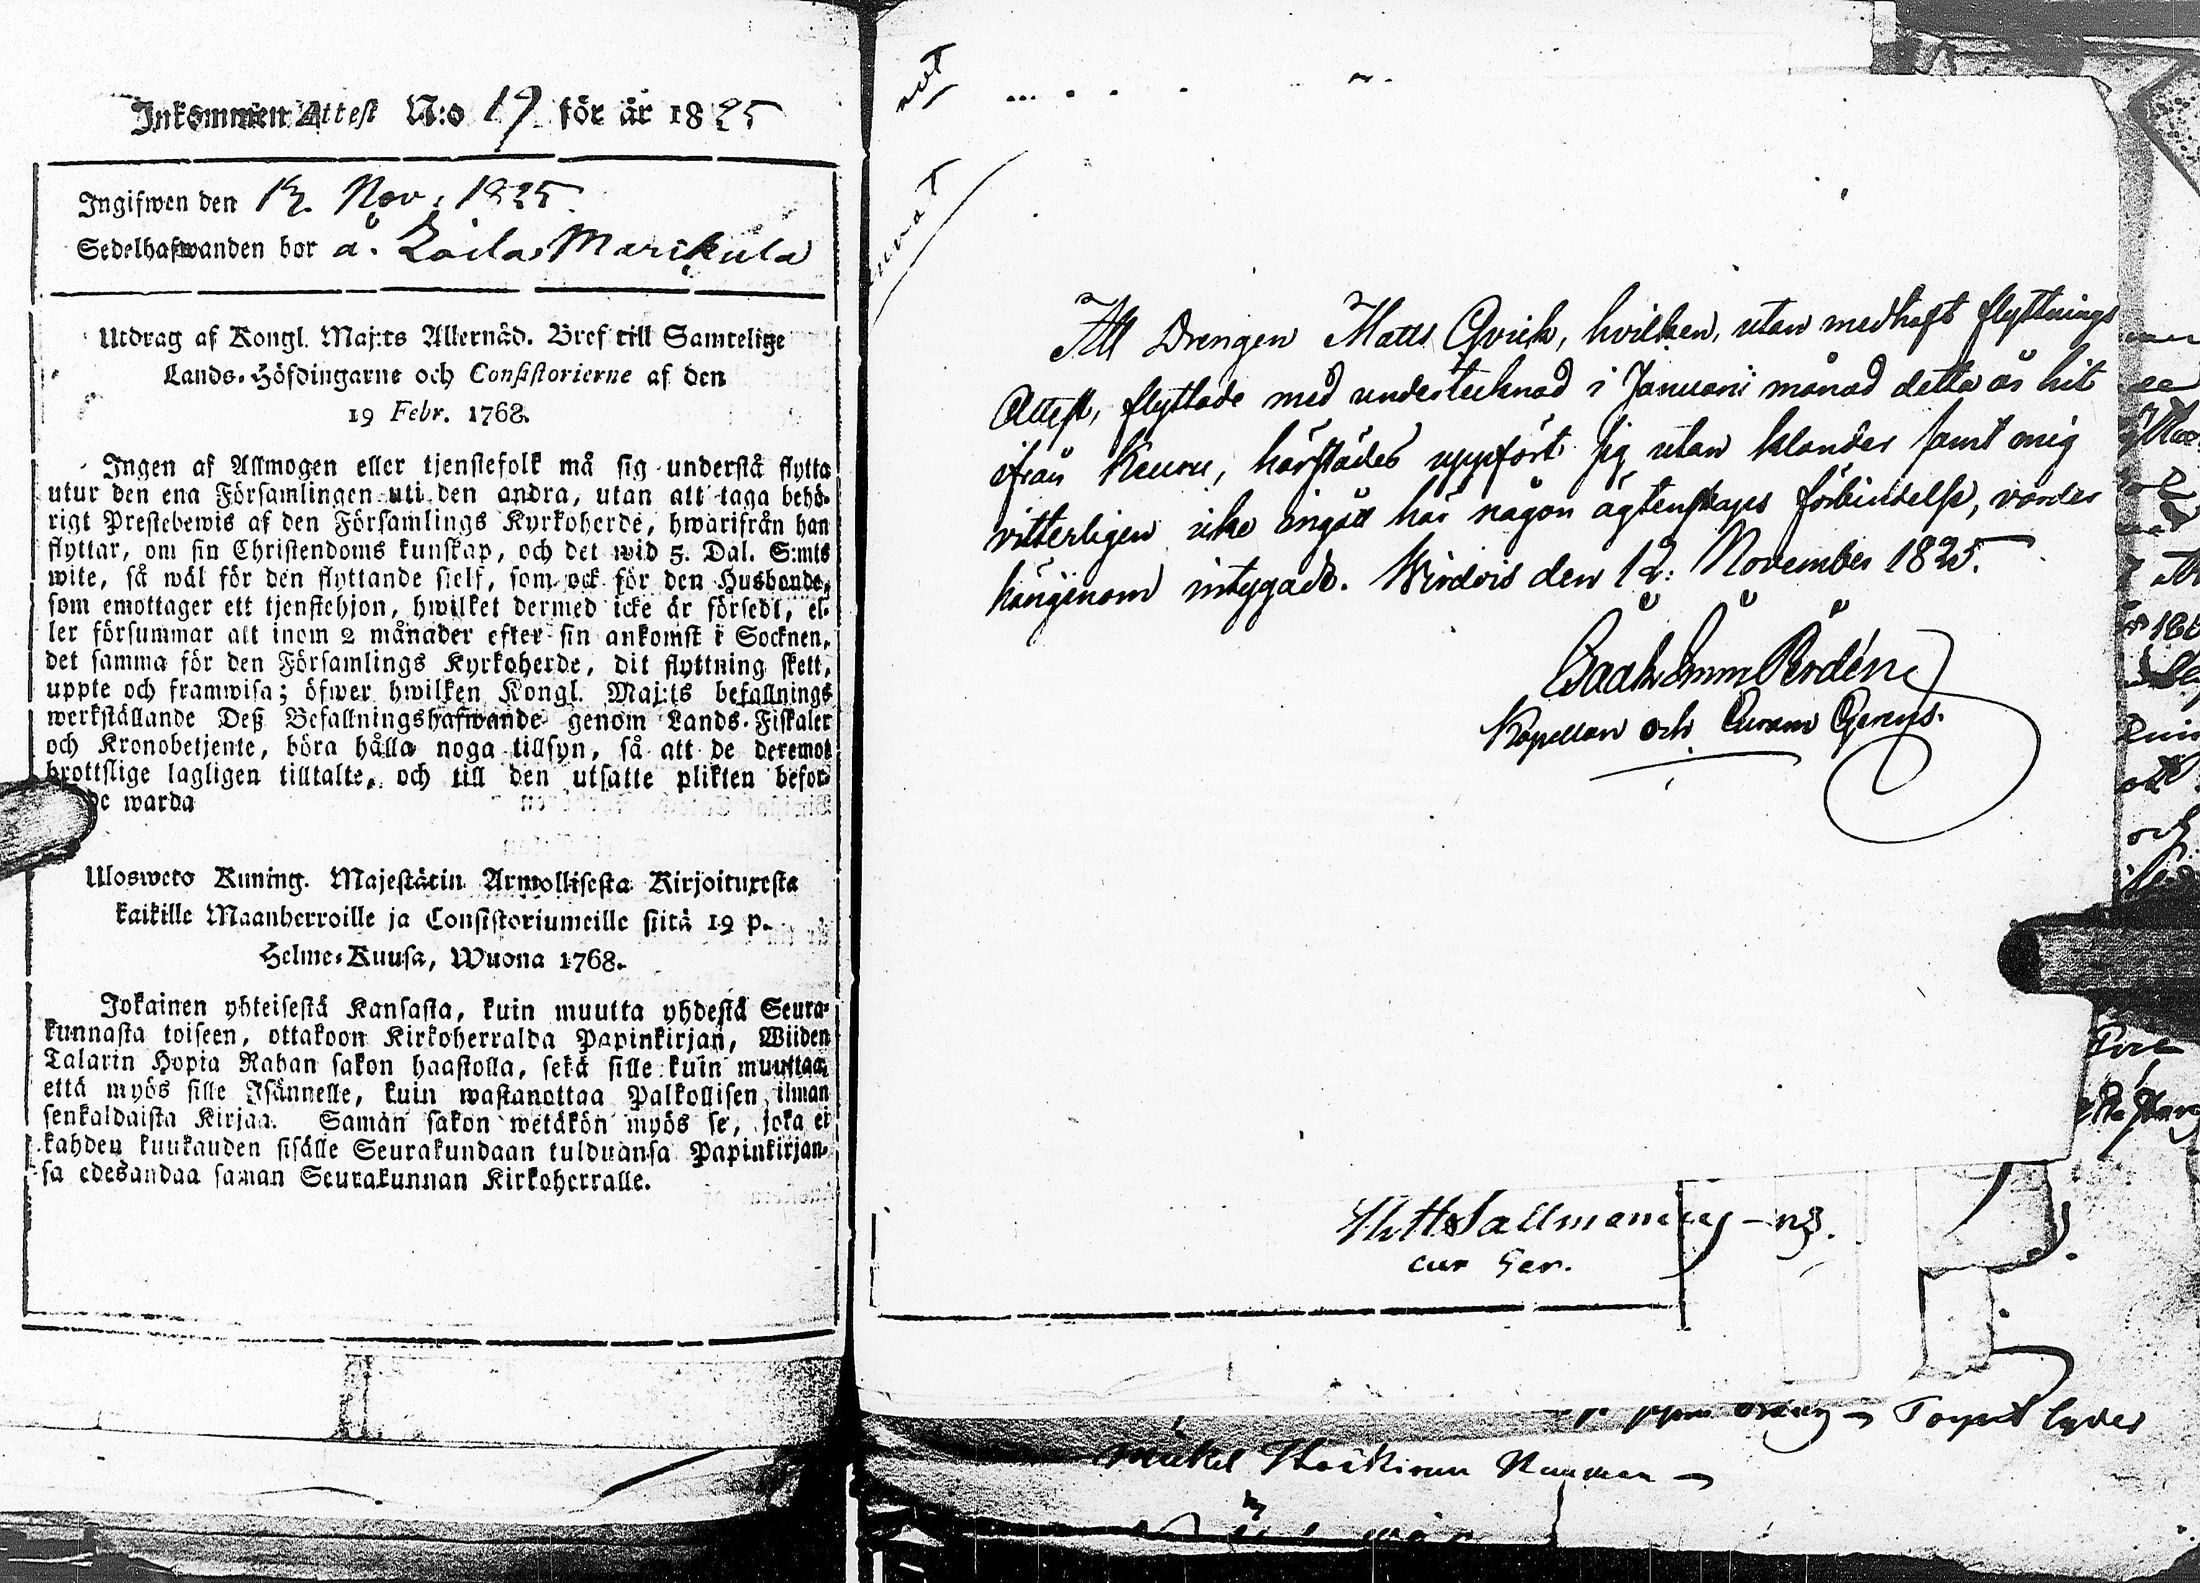 Inkommen Attest N:o 19 för år 1825
Ingifwen den 13. Nov. 1825.
Sedelhafwanden bor å. Marikula
Utdrag af Kongl. Maj:ts Allernåd. Bref till Samtelige
Lands-Höfdingarne och Consistorierne af den
19 Febr. 1768.
Ingen af Allmogen eller tjenstefolk må sig understå flytta
utur den ena Församlingen uti den andra, utan att taga behö-
rigt Prestebewis af den Församlings Kyrkoherde, hwarifrån han
flyttar, om sin Christendoms kunskap, och det wid 5. Dal. S:mts
wite, så wäl för den flyttande sielf, som ock för den Husbonde,
som emottager ett tjenstehjon, hwilket dermed icke är försedt, el-
ler försummar att inom 2 månader efter sin ankomst i Socknen,
det samma för den Församlings Kyrkoherde, dit flyttning skett,
uppte och framwisa; öfwer hwilken Kongl. Maj:ts befallnings
werkställande Deß Befallningshafwande genom Lands-Fiskaler
och Kronobetjente, böra hålla noga tillsyn, så att de deremot
brottslige lagligen tilltalte, och till den utsatte plikten befor-
de warda
Ulosweto Kuning. Majestätin Armollisesta Kirjoituxesta
kaikille Maanherroille ja Consistoriumeille siitä 19 p.
Helme-Kuusa, Wuona 1768.
Jokainen yhteisestä Kansasta, kuin muutta yhdestä Seura-
kunnasta toiseen, ottakoon Kirkoherralda Papinkirjan, Wiiden
Talarin Hopia Rahan sakon haastolla, sekä sille kuin muuttaa,
että myös sille Isännelle, kuin wastanottaa Palkollisen ilman
senkaldaista Kirjaa. Saman sakon wetäkön myös se, joka ei
kahden kuukauden sisälle Seurakundaan tulduansa Papinkirjan-
sa edesandaa saman Seurakunnan Kirkoherralle.
Att Drengen Matts Qvick, hvilken, utan medhaft flyttnings
Attest, flyttade med undertecknad i Januarii månad detta år hit
ifrån Keuru, härstädes uppfört sig utan klander samt mig
vitterligen icke ingått här någon ägtenskaps förbindelse, varder
härigenom intygadt. Wirdois den 12. November 1825.
Isaak Emm Rodén
Kapellan och Curam Gerens.
Sallmen
cur Ger.
Mickel